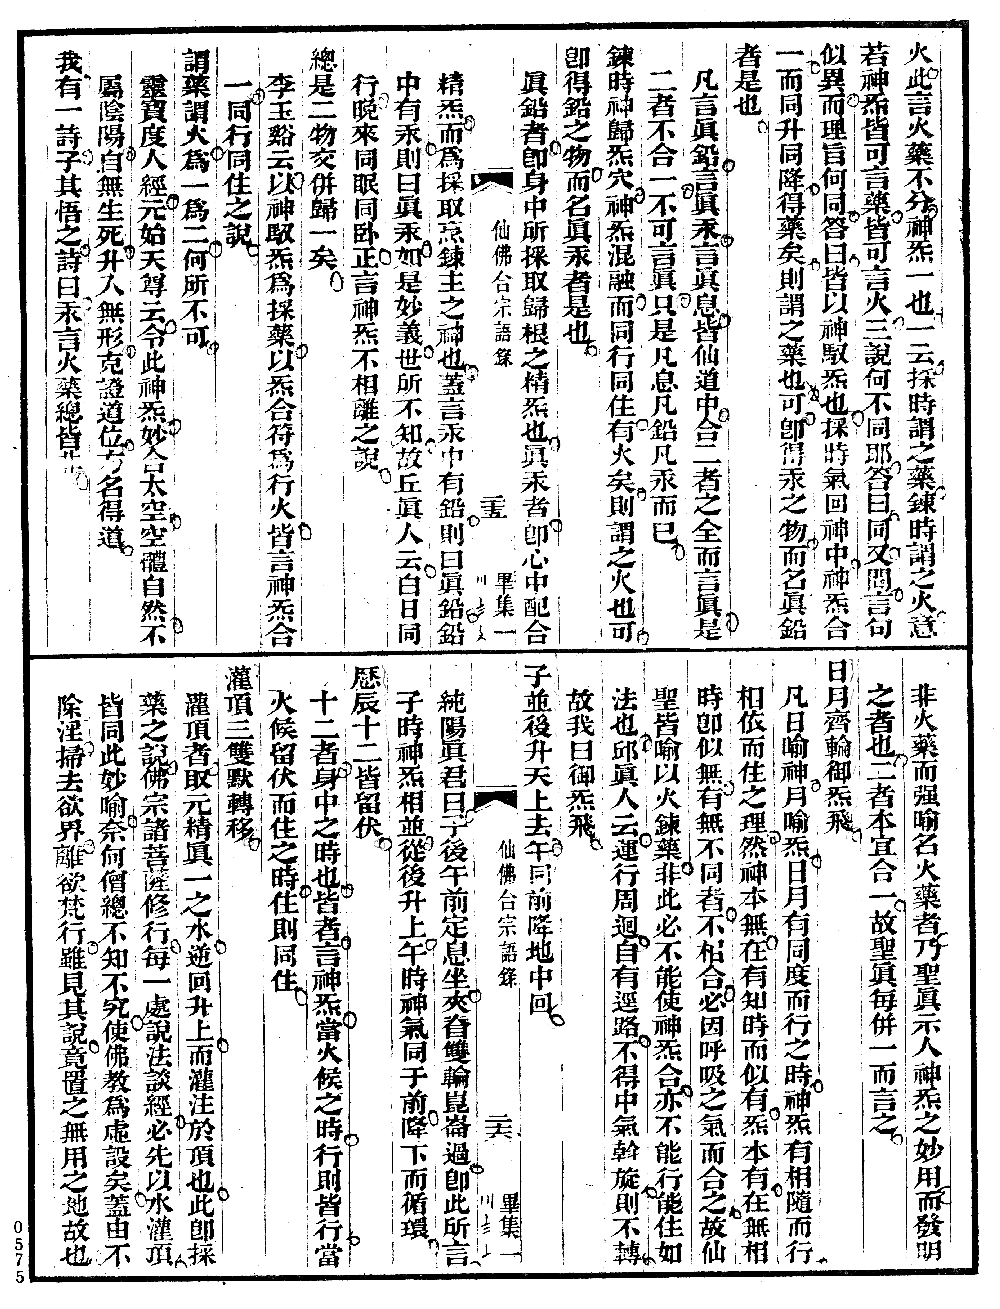 火此言火藥不分神炁一也一云採時謂之藥鍊時謂之火意
若神炁皆可言藥皆可言火三說何不同耶答曰同又問言句
似異而理旨何同答曰皆以神馭炁也採時氣回神中神炁合
一而同升同降得藥矣則謂之藥也可卽得汞之物而名眞鉛
者是也
凡言眞鉛言眞汞言眞息皆仙道中合二者之全而言眞是
二者不合一不可言眞只是凡息凡鉛凡汞而已
鍊時神歸炁穴神炁混融而同行同住有火矣則謂之火也可
卽得鉛之物而名眞汞者是也
眞鉛者卽身中所採取歸根之精炁也眞汞者卽心中配合
仙佛合宗語錄
二十五
畢集一
精炁而爲採取烹鍊主之神也蓋言汞中有鉛則曰眞鉛鉛
中有汞則曰眞汞如是妙義世所不知故丘眞人云白日同
行晚來同眠同卧正言神炁不相離之說
總是二物交併歸一矣
李玉谿云以神馭炁爲採藥以炁合符爲行火皆言神炁合
一同行同住之說
謂藥謂火爲一爲二何所不可
靈寶度人經元始天尊云令此神炁妙合太空空體自然不
屬陰陽自無生死升入無形克證道位方名得道
我有一詩子其悟之詩曰汞言火藥總皆
非火藥而强喻名火藥者乃聖眞示人神炁之妙用而發明
之者也二者本宜合一故聖眞每併一而言之
日月齊輪御炁飛
凡日喻神月喻炁日月有同度而行之時神炁有相隨而行
相依而住之理然神本無在有知時而似有炁本有在無相
時卽似無有無不同者不相合必因呼吸之氣而合之故仙
聖皆喻以火鍊藥非此必不能使神炁合亦不能行能住如
法也邱眞人云運行周迴自有逕路不得中氣斡旋則不轉
故我曰御炁飛
子並後升天上去午同前降地中回
仙佛合宗語錄
二十六
畢集一
純陽眞君曰子後午前定息坐夾脊雙輪崑崙過卽此所言
子時神炁相並從後升上午時神氣同于前降下而循環
歷辰十二皆留伏
十二者身中之時也皆者言神炁當火候之時行則皆行當
火候留伏而住之時住則同住
灌頂三雙默轉移
灌頂者取元精眞一之水逆回升上而灌注於頂也此卽採
藥之說佛宗諸菩薩修行每一處說法談經必先以水灌頂
皆同此妙喻奈何僧總不知不究使佛教爲虛設矣蓋由不
除淫掃去欲界離欲梵行雖見其說竟置之無用之地故也
0575